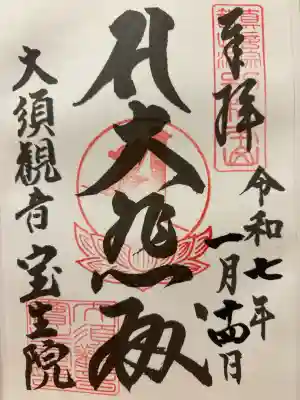 奉拝
令和七年
一月十四日
大悲殿
大須観音 宝生院